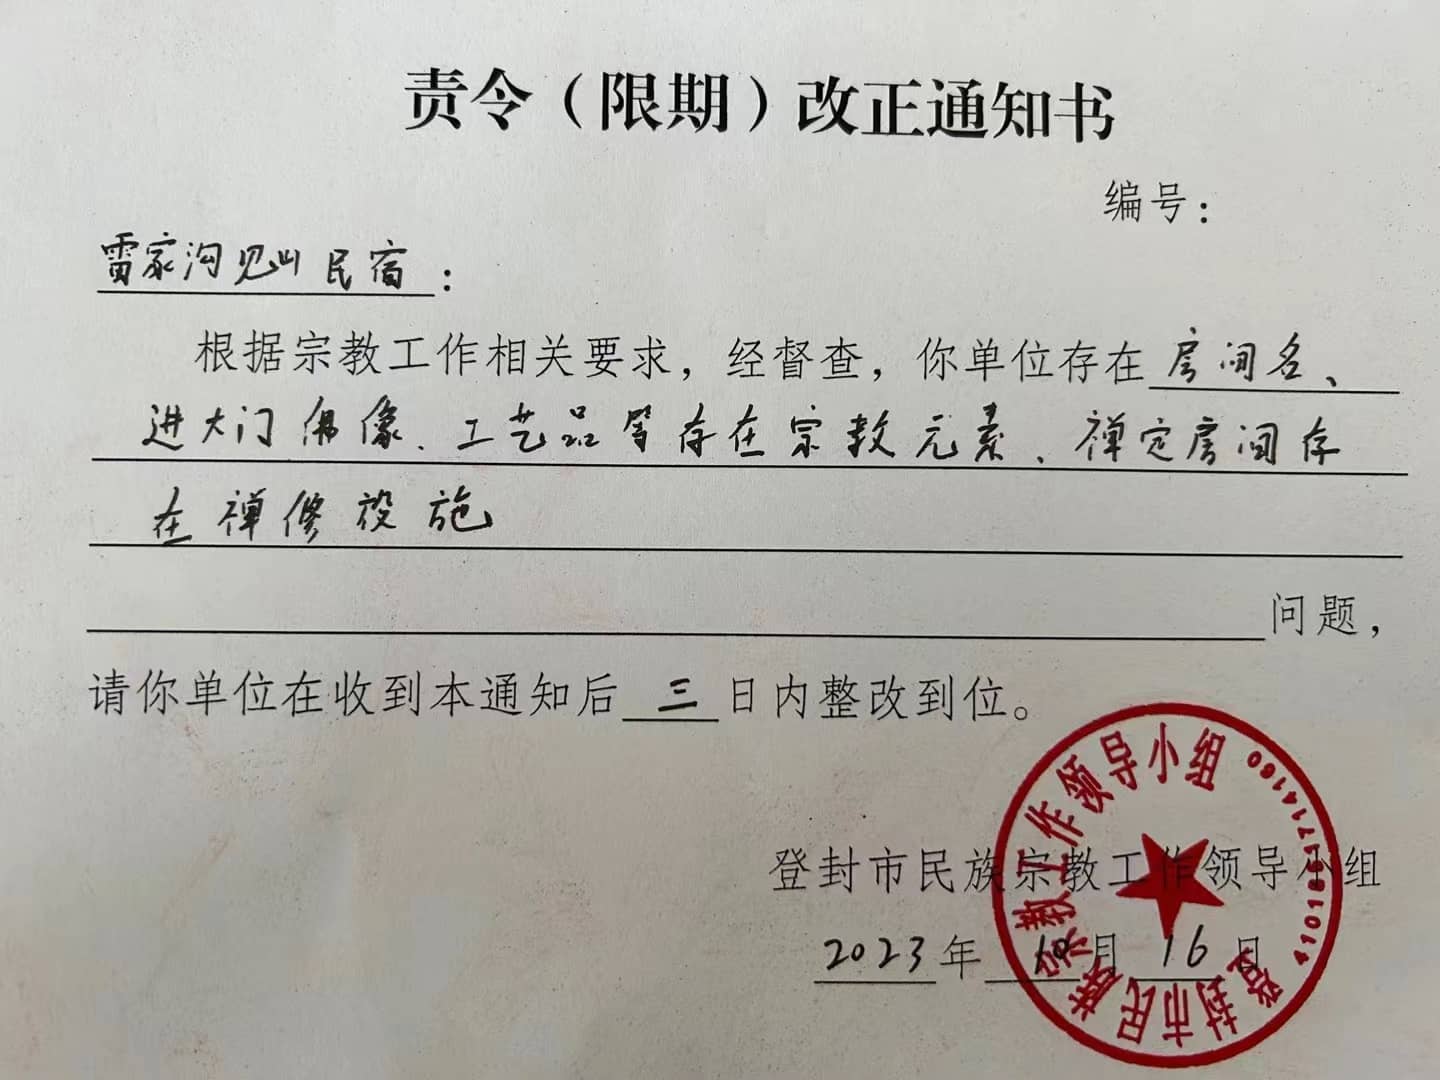 责令（限期）改正通知书
编号：
雷家沟见山民宿：
根据宗教工作相关要求，经督查，你单位存在房间名、
进大门佛像、工艺品等存在宗教元素、禅定房间存
在禅修设施
问题，
请你单位在收到本通知后三日内整改到位。
登封市民族宗教工作领导小组
2023年10月16日
登封市民族宗教工作领导小组